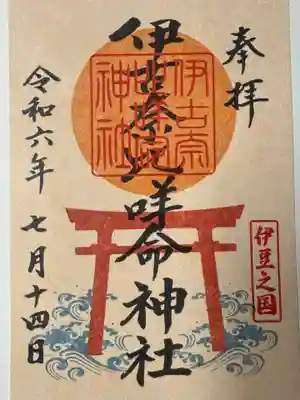 奉拝
伊豆之国
伊古奈比咩命神社
伊古奈
神社
令和六年 七月十四日